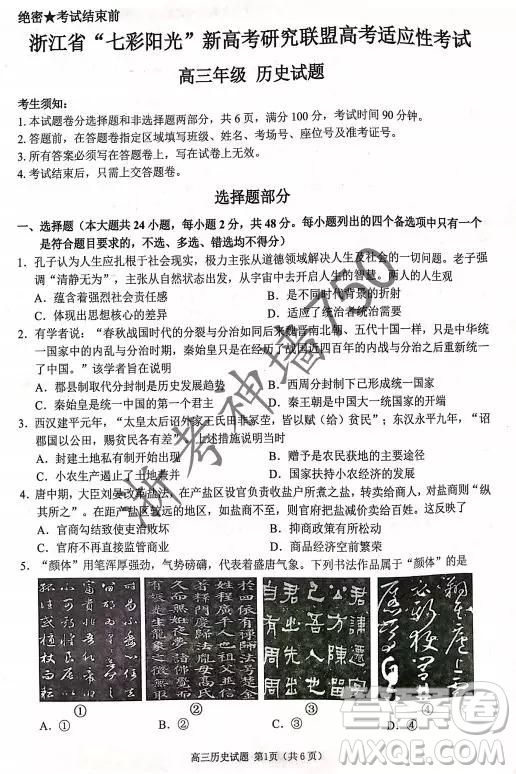 绝密★考试结束前
浙江省“七彩阳光”新高考研究联盟高考适应性考试
高三年级 历史试题
考生须知：
1.本试题卷分选择题和非选择题两部分，共 6 页，满分 100 分，考试时间 90 分钟。
2.答题前，在答题卷指定区域填写班级、姓名、考场号、座位号及准考证号。
3.所有答案必须写在答题卷上，写在试卷上无效。
4.考试结束后，只需上交答题卷。
选择题部分
一、选择题（本大题共 24 小题，每小题 2 分，共 48 分。每小题列出的四个备选项中只有一个
是符合题目要求的，不选、多选、错选均不得分）
1．孔子认为人生应扎根于社会的根本，极力主张从道德领域解决人生及社会的一切问题。老子强
调“清静无为”，主张从自然状态出发，从宇宙中去开启人生的智慧。两人的人生观
A．蕴含着强烈社会责任感
B．是所处时代背景的折射
C．体现出思想核心的差异
D．适应了统治者统治需要
2．有学者说：“春秋战国时代的分裂与分治如同后来魏晋南北朝、五代十国一样，只是中华统一
国家中的内乱与分治时期，秦始皇只是在恢复统一国家的故态，将四百年的内战与分治之后重新统一
了中国。”该学者旨在说明
A．郡县制取代分封制是历史发展趋势
B．西周分封制下已形成统一国家
C．秦始皇是统一中国的第一个君主
D．秦王朝是中国大一统国家的开端
3．西汉建平元年，“太皇太后诏外家王氏田非冢茔，皆以赋（给）贫民”；东汉永平九年，“诏
郡国以公田，赐贫民各有差”上述措施说明当时
A．封建土地私有制开始形成
B．赐予是农民获地的主要途径
C．小农生产遏止了土地兼并
D．国家扶持小农经济的发展
4．唐中期，大臣刘晏改革盐法，在产盐区设官负责收盐户所煮之盐，转卖商人，对盐商则“纵
其所之”。在距产盐区较远的地区，如有盐商不到的地方，官府仍需运官盐至百姓。这反映了
A．官商勾结致使吏治败坏
B．抑商政策有所松动
C．官府不再直接监管商业
D．商品经济空前繁荣
5．“颜体”用笔浑厚强劲，气势磅礴，代表着盛唐气象。下列书法作品属于“颜体”的是
① ② ③ ④
A．① B．② C．③ D．④
高三历史试题 第1页（共 6 页）
浙考神墙750